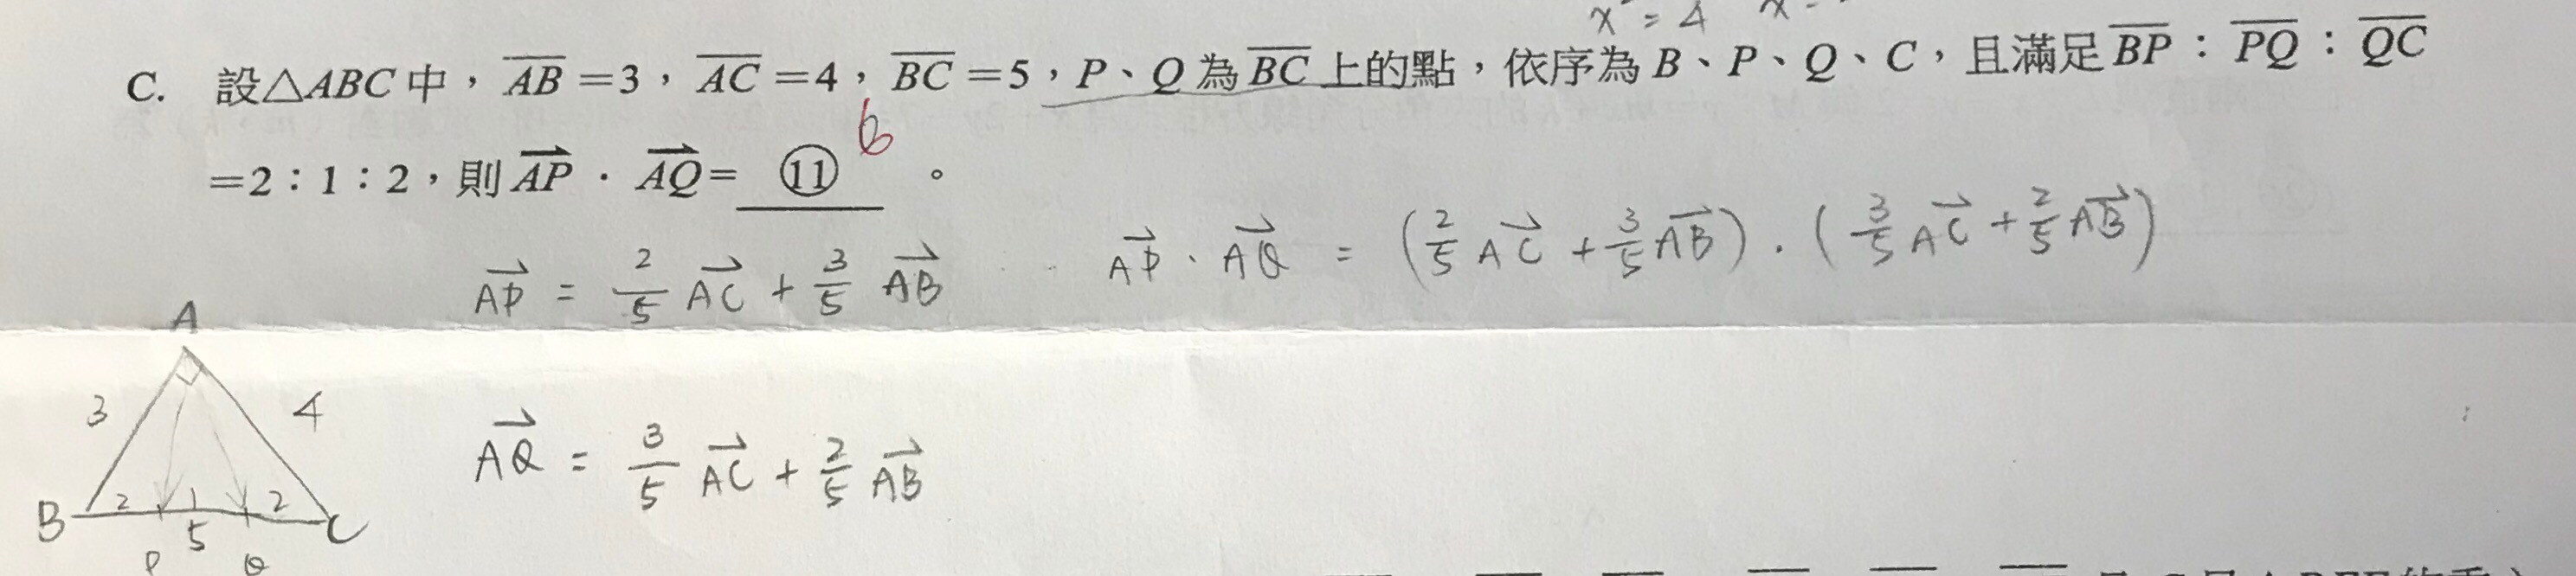 x² = 4 x
C. 設△ABC中，AB=3，AC=4，BC=5，P、Q為BC上的點，依序為B、P、Q、C，且滿足BP：PQ：QC
=2：1：2，則AP · AQ= ⑪ 。
6
AP = 2/5 AC + 3/5 AB
AP · AQ = (2/5 AC + 3/5 AB) · (3/5 AC + 2/5 AB)
A
3 4
AQ = 3/5 AC + 2/5 AB
B 2 1 2 C
5
P Q